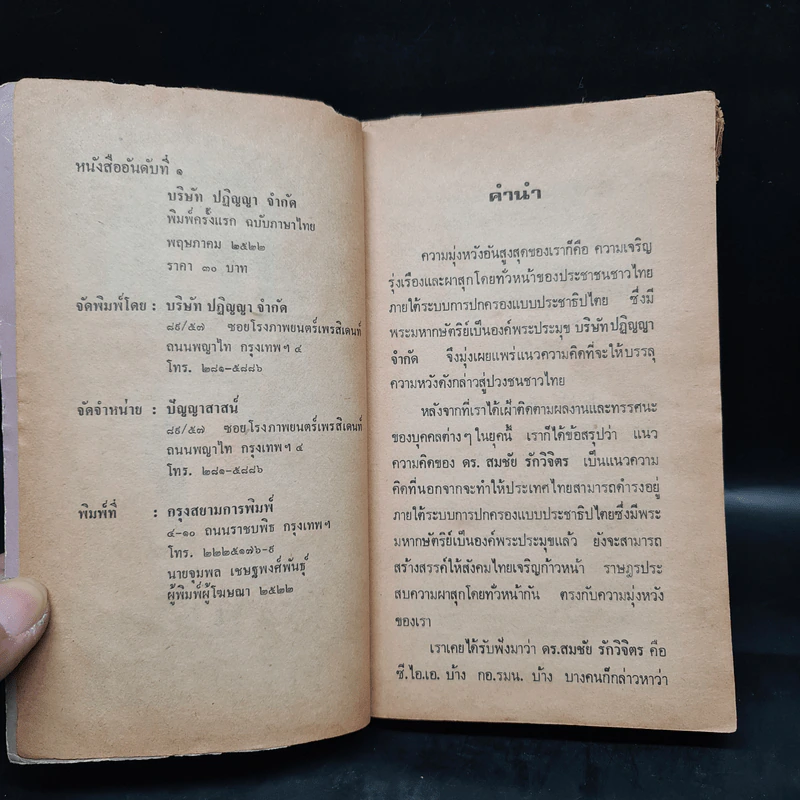 หนังสืออันดับที่ ๑
บริษัท ปฏิญญา จำกัด
พิมพ์ครั้งแรก ฉบับภาษาไทย
พฤษภาคม ๒๕๒๒
ราคา ๓๐ บาท
จัดพิมพ์โดย : บริษัท ปฏิญญา จำกัด
๘๙/๕๗ ซอยโรงภาพยนตร์เพรสิเดนท์
ถนนพญาไท กรุงเทพฯ ๔
โทร. ๒๘๑-๕๘๘๖
จัดจำหน่าย : ปัญญาสาสน์
๘๙/๕๗ ซอยโรงภาพยนตร์เพรสิเดนท์
ถนนพญาไท กรุงเทพฯ ๔
โทร. ๒๘๑-๕๘๘๖
พิมพ์ที่ : กรุงสยามการพิมพ์
๔-๑๐ ถนนราชบพิธ กรุงเทพฯ
โทร. ๒๒๒๕๑๗๖-๙
นายจุมพล เชษฐพงศ์พันธุ์
ผู้พิมพ์ผู้โฆษณา ๒๕๒๒
คำนำ
ความมุ่งหวังอันสูงสุดของเราก็คือ ความเจริญ
รุ่งเรืองและผาสุกโดยทั่วหน้าของประชาชนชาวไทย
ภายใต้ระบบการปกครองแบบประชาธิปไตย ซึ่งมี
พระมหากษัตริย์เป็นองค์พระประมุข บริษัทปฏิญญา
จำกัด จึงมุ่งเผยแพร่แนวความคิดที่จะให้บรรลุ
ความหวังดังกล่าวสู่ปวงชนชาวไทย
หลังจากที่เราได้เฝ้าติดตามผลงานและทรรศนะ
ของบุคคลต่างๆ ในยุคนี้ เราก็ได้ข้อสรุปว่า แนว
ความคิดของ ดร. สมชัย รักวิจิตร เป็นแนวความ
คิดที่นอกจากจะทำให้ประเทศไทยสามารถดำรงอยู่
ภายใต้ระบบการปกครองแบบประชาธิปไตยซึ่งมีพระ
มหากษัตริย์เป็นองค์พระประมุขแล้ว ยังจะสามารถ
สร้างสรรค์ให้สังคมไทยเจริญก้าวหน้า ราษฎรประ
สบความผาสุกโดยทั่วหน้ากัน ตรงกับความมุ่งหวัง
ของเรา
เราเคยได้รับฟังมาว่า ดร.สมชัย รักวิจิตร คือ
ซี.ไอ.เอ. บ้าง กอ.รมน. บ้าง บางคนก็กล่าวหาว่า